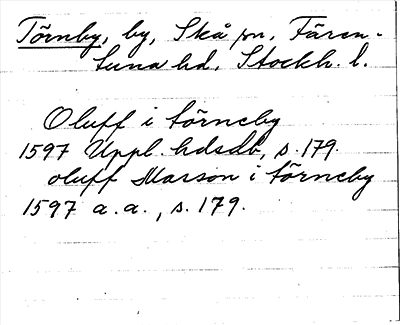 Törnby, by, Skå sn, Fären-
tuna hd, Stockh. l.
Oluff i törneby
1597 Uppl. hdsdb, s. 179.
oluff Marson i törneby
1597 a.a., s. 179.